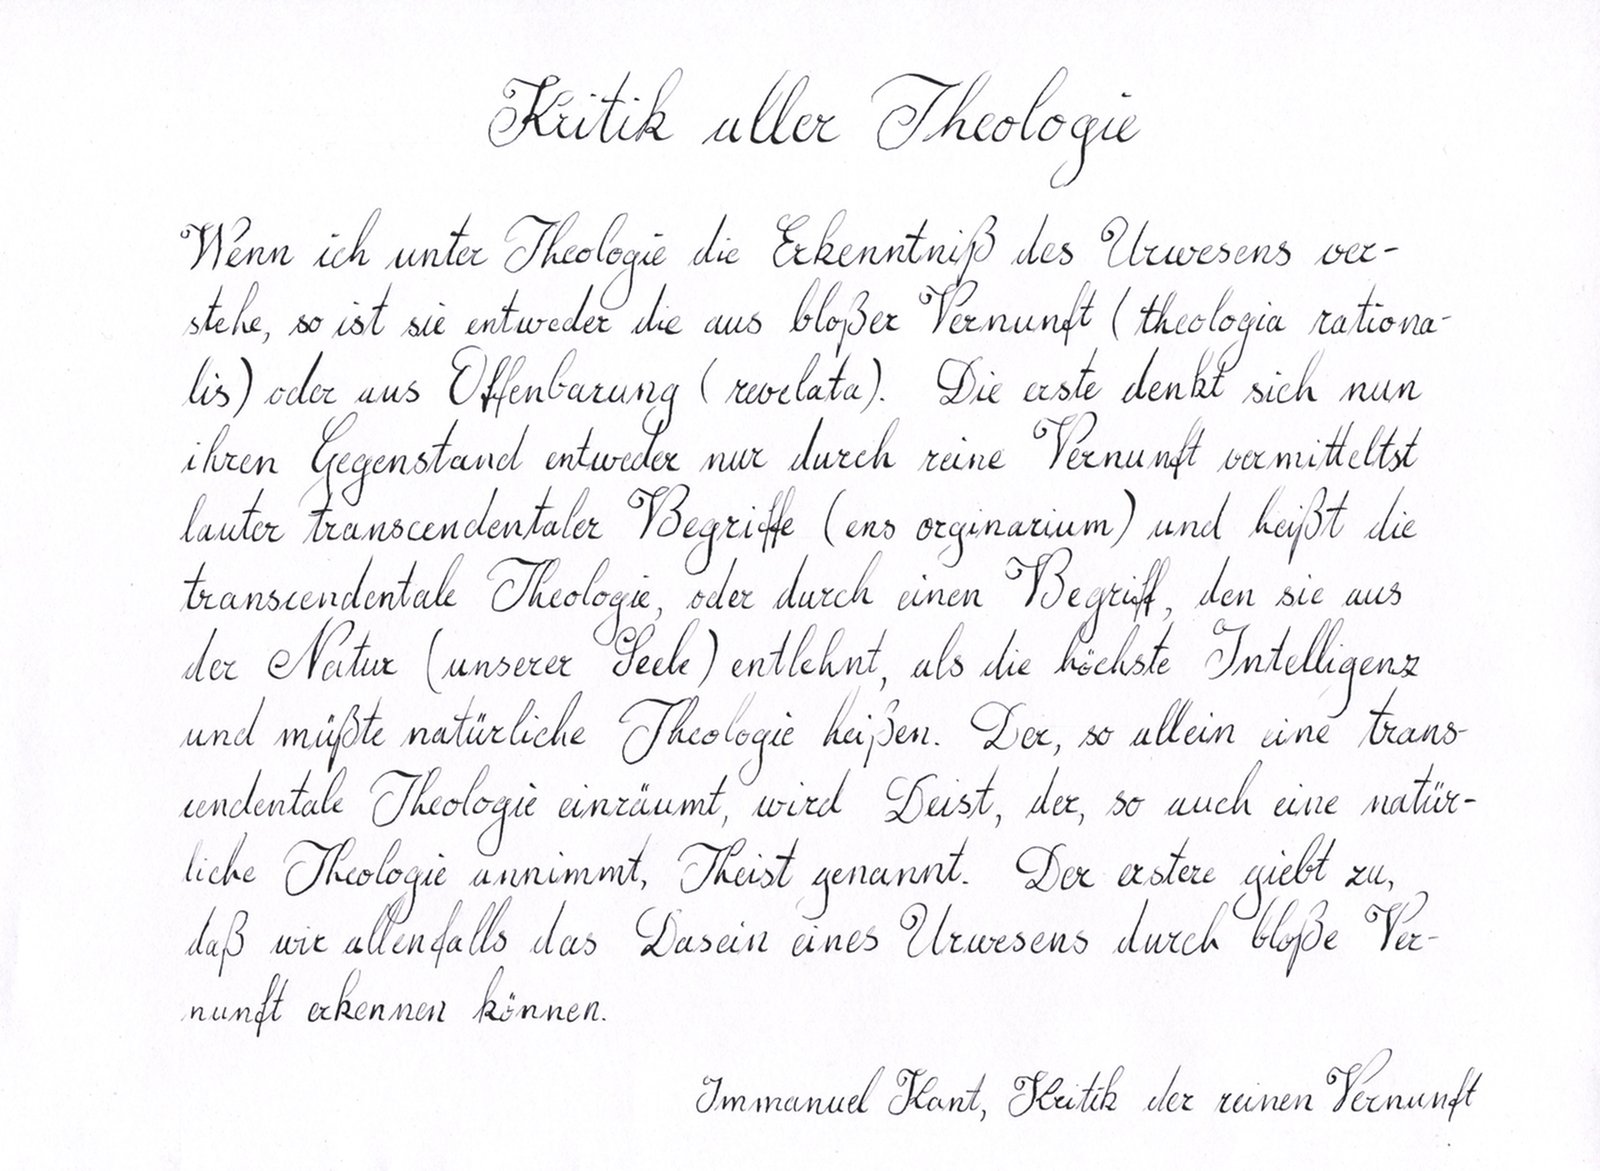 Kritik aller Theologie
Wenn ich unter Theologie die Erkenntniß des Urwesens ver-
stehe, so ist sie entweder die aus bloßer Vernunft (theologia rationa-
lis) oder aus Offenbarung (revelata). Die erste denkt sich nun
ihren Gegenstand entweder nur durch reine Vernunft vermittelst
lauter transcendentaler Begriffe (ens orginarium) und heißt die
transcendentale Theologie, oder durch einen Begriff, den sie aus
der Natur (unserer Seele) entlehnt, als die höchste Intelligenz
und müßte natürliche Theologie heißen. Der, so allein eine trans-
cendentale Theologie einräumt, wird Deist, der, so auch eine natür-
liche Theologie annimmt, Theist genannt. Der erstere giebt zu,
daß wir allenfalls das Dasein eines Urwesens durch bloße Ver-
nunft erkennen können.
Immanuel Kant, Kritik der reinen Vernunft